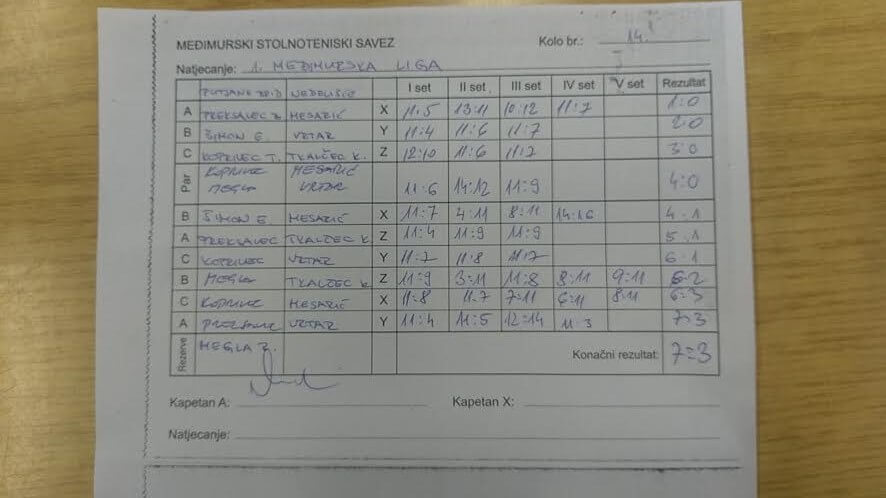 MEĐIMURSKI STOLNOTENISKI SAVEZ Kolo br.: 14.
Natjecanje: 1. MEĐIMURSKA LIGA
NEDELIŠĆE I set II set III set IV set V set Rezultat
A PREKSALEC MESARIĆ X 11:5 13:11 10:12 11:7 1:0
B ŠIMON E. VRTAR Y 11:4 11:6 11:7 2:0
C KOPRIVEC T. TKALČEC K. Z 12:10 11:6 11:7 3:0
Par KOPRIVEC MESARIĆ
MEGLA VRTAR 11:6 14:12 11:9 4:0
B ŠIMON E MESARIĆ X 11:7 4:11 8:11 14:16 4:1
A PREKSALEC TKALČEC K. Z 11:4 11:9 11:9 5:1
C KOPRIVEC VRTAR Y 11:7 11:8 11:7 6:1
B MEGLA TKALČEC K. Z 11:9 3:11 11:8 8:11 9:11 6:2
C KOPRIVEC MESARIĆ X 11:8 11:7 7:11 6:11 8:11 6:3
A VRTAR Y 11:4 11:5 12:14 11:3 7:3
Rezerve MEGLA Z. Konačni rezultat: 7:3
Kapetan A: Kapetan X:
Natjecanje: